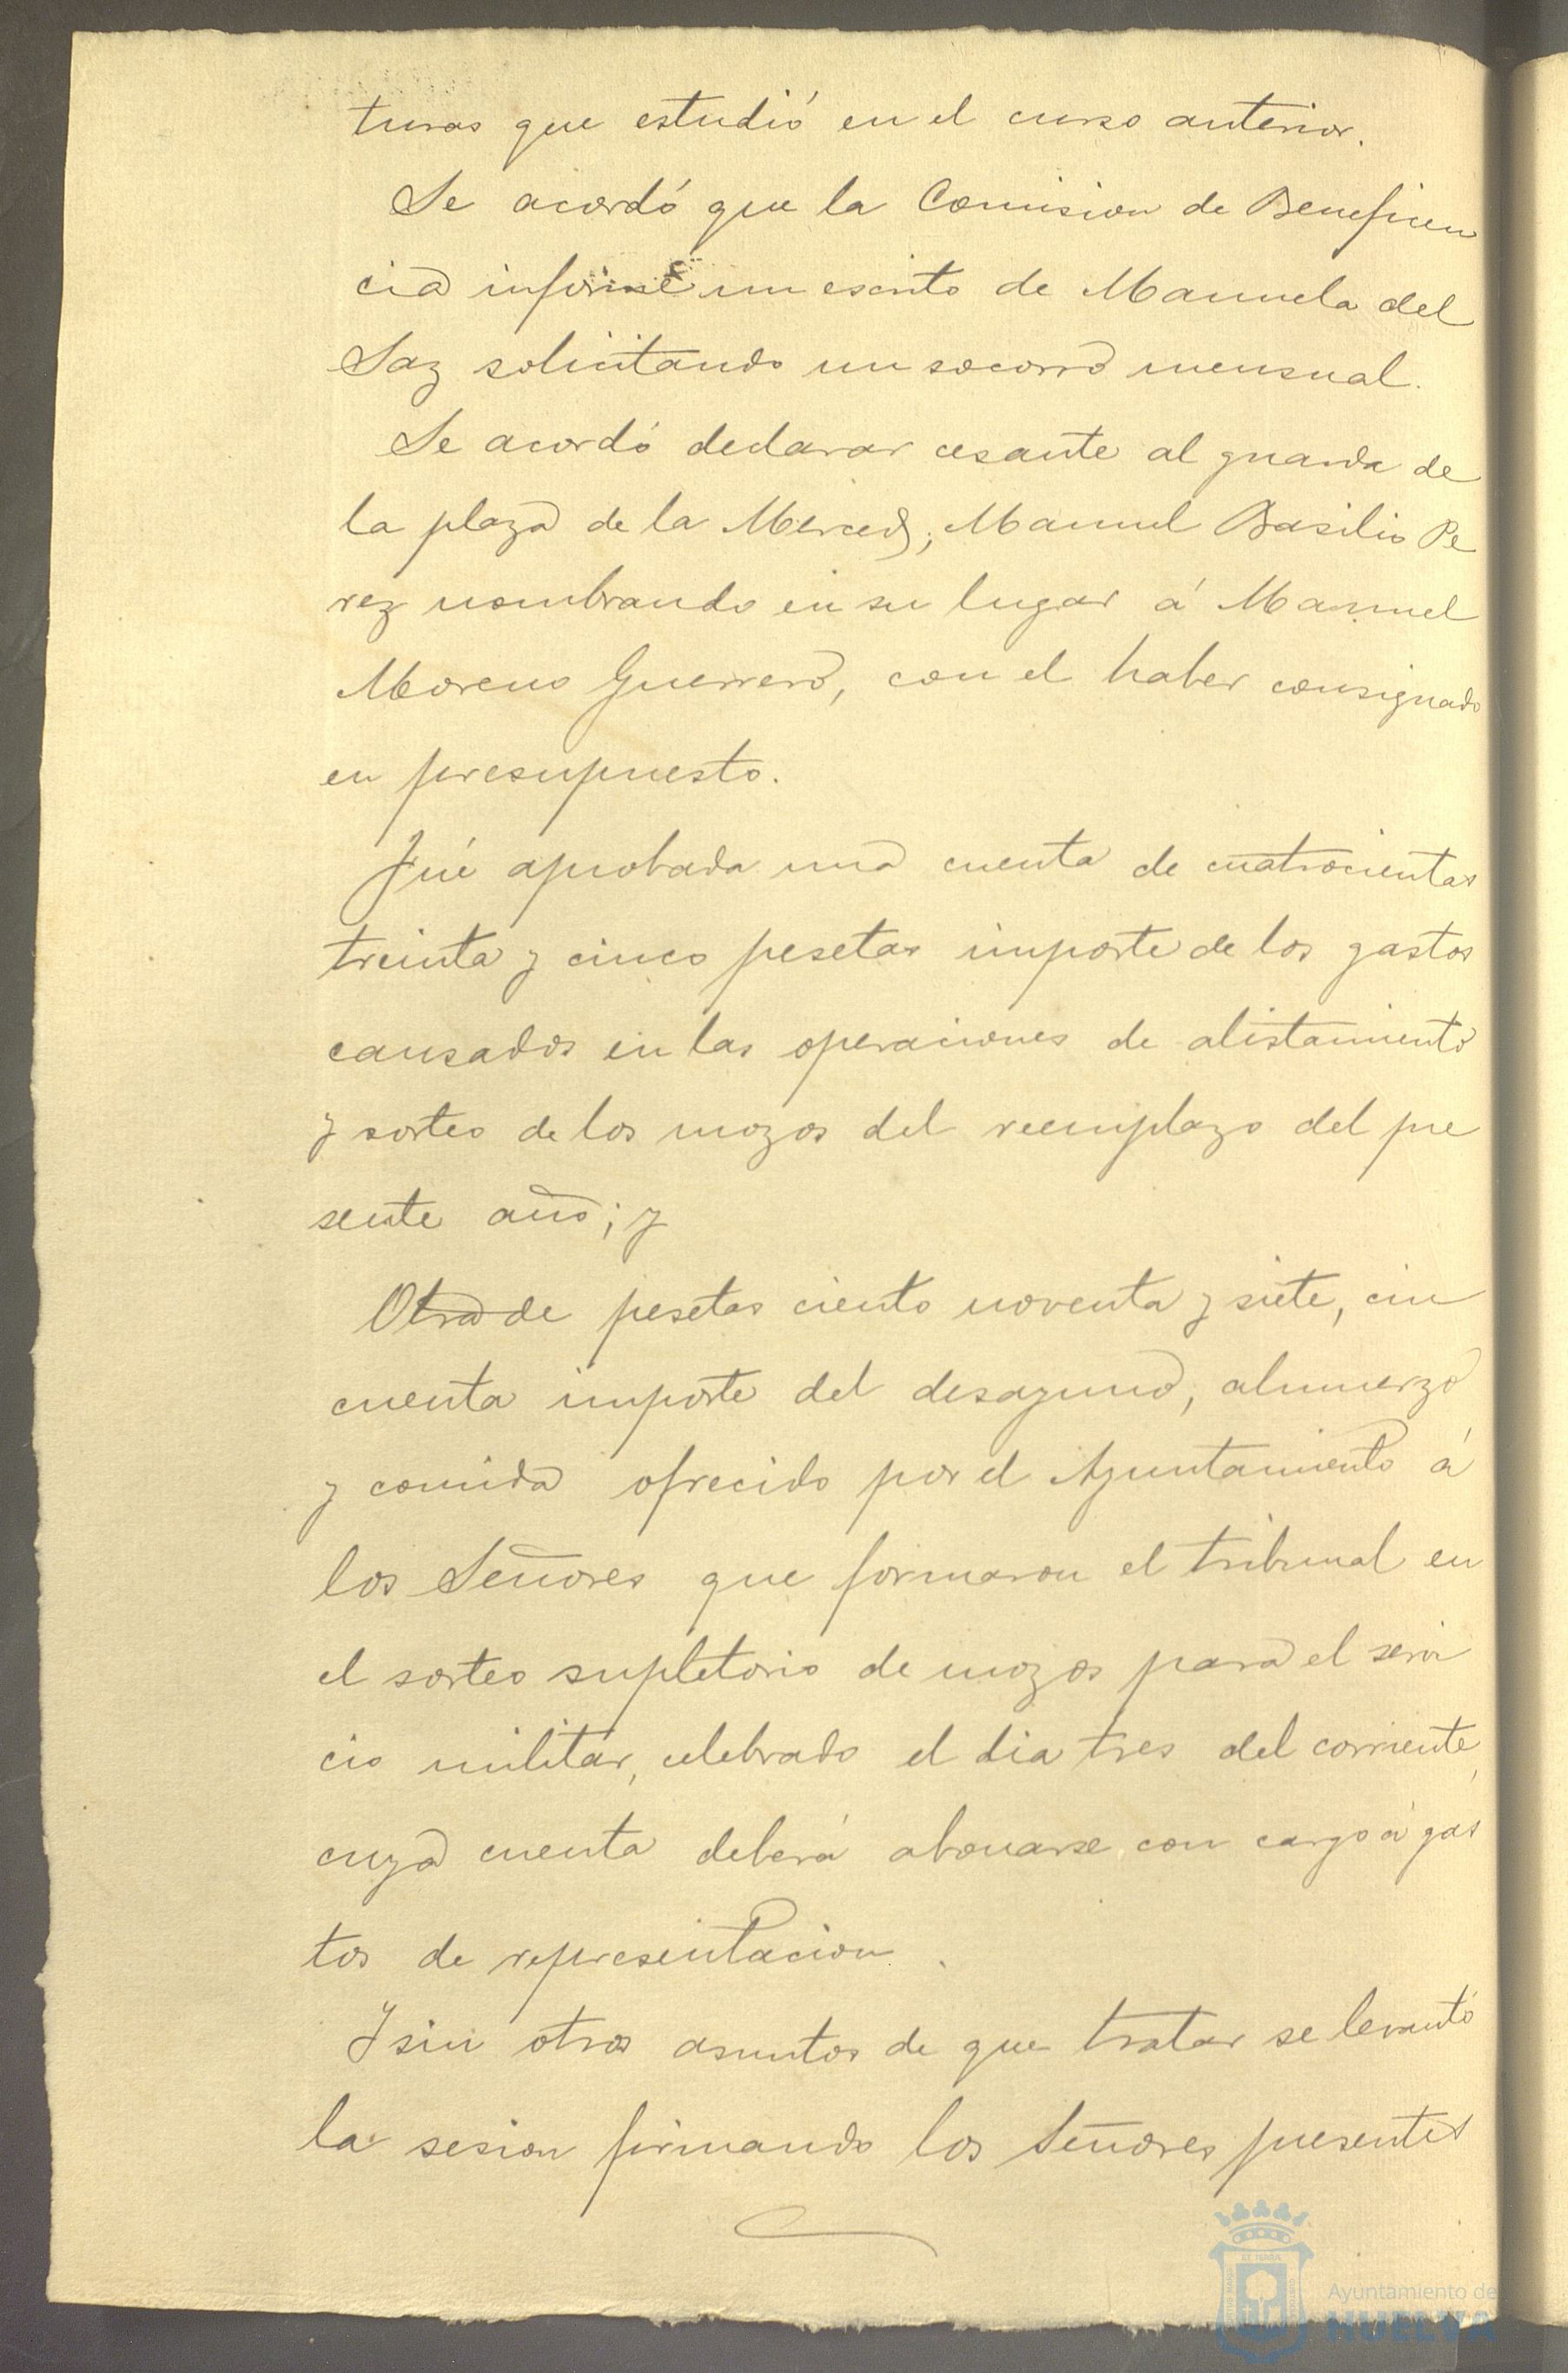 turas que estudió en el curso anterior.
Se acordó que la Comision de Beneficen
cia informe un escrito de Manuela del
Saz solicitando un socorro mensual.
Se acordó declarar cesante al guarda de
la plaza de la Merced, Manuel Basilio Pe
rez nombrando en su lugar á Manuel
Moreno Guerrero, con el haber consignado
en presupuesto.
Fué aprobada una cuenta de cuatrocientas
treinta y cinco pesetas importe de los gastos
causados en las operaciones de alistamiento
y sorteo de los mozos del reemplazo del pre
sente año; y
Otra de pesetas ciento noventa y siete, cin
cuenta importe del desayuno, almuerzo
y comida ofrecido por el Ayuntamiento á
los Señores que formaron el tribunal en
el sorteo supletorio de mozos para el servi
cio militar, celebrado el dia tres del corriente,
cuya cuenta deberá abonarse con cargo á gas
tos de representacion.
Y sin otros asuntos de que tratar se levantó
la sesion firmando los Señores presentes
Ayuntamiento de
HUELVA